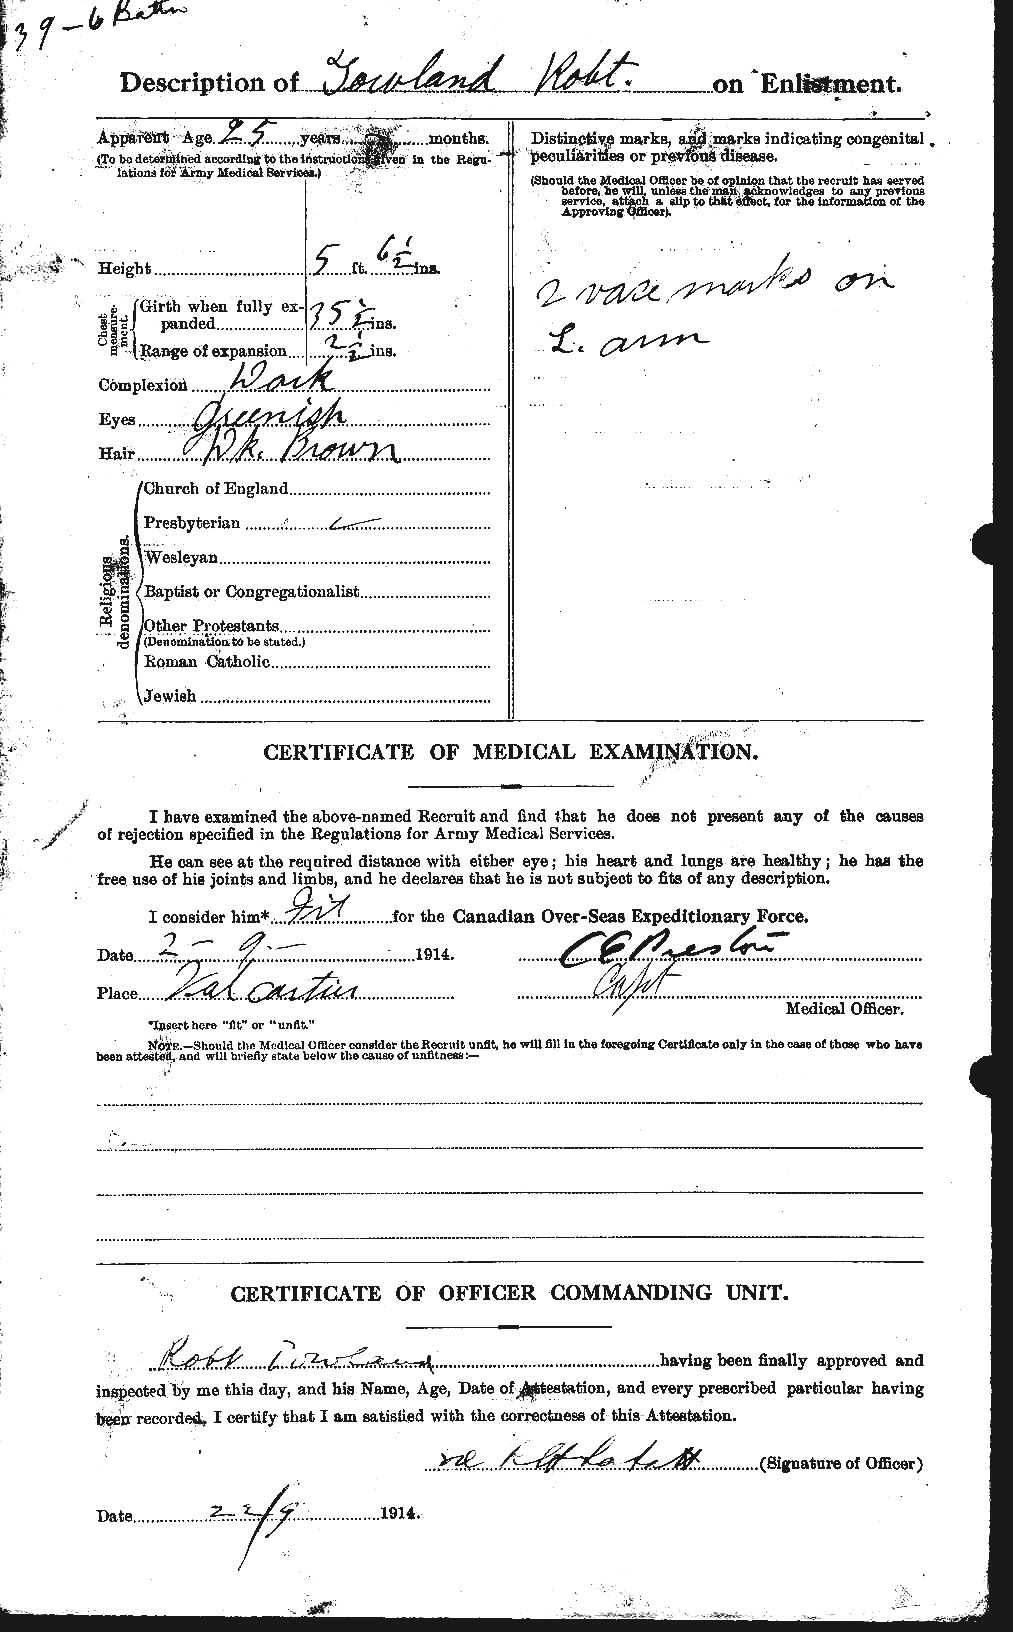 39-6 Battn
Description of Towland Robt. on Enlistment.
Apparent Age 25 years months.
(To be determined according to the instructions given in the Regu-
lations for Army Medical Services.)
Height 5 ft. 6½ ins.
Chest measure-ment.
Girth when fully ex-
panded 35½ ins.
Range of expansion 2½ ins.
Complexion Dark
Eyes Greenish
Hair Dk. Brown
Religious denominations.
Church of England
Presbyterian ✓
Wesleyan
Baptist or Congregationalist
Other Protestants
(Denomination to be stated.)
Roman Catholic
Jewish
Distinctive marks, and marks indicating congenital
peculiarities or previous disease.
(Should the Medical Officer be of opinion that the recruit has served
before, he will, unless the man acknowledges to any previous
service, attach a slip to that effect, for the information of the
Approving Officer).
2 vacc marks on
L. arm
CERTIFICATE OF MEDICAL EXAMINATION.
I have examined the above-named Recruit and find that he does not present any of the causes
of rejection specified in the Regulations for Army Medical Services.
He can see at the required distance with either eye; his heart and lungs are healthy; he has the
free use of his joints and limbs, and he declares that he is not subject to fits of any description.
I consider him* Fit for the Canadian Over-Seas Expeditionary Force.
Date 2-9- 1914.
C E Preston
Place Val cartier
Capt
Medical Officer.
*Insert here "fit" or "unfit."
NOTE.—Should the Medical Officer consider the Recruit unfit, he will fill in the foregoing Certificate only in the case of those who have
been attested, and will briefly state below the cause of unfitness:—
CERTIFICATE OF OFFICER COMMANDING UNIT.
Robt Towland having been finally approved and
inspected by me this day, and his Name, Age, Date of Attestation, and every prescribed particular having
been recorded, I certify that I am satisfied with the correctness of this Attestation.
(Signature of Officer)
Date 22/9 1914.